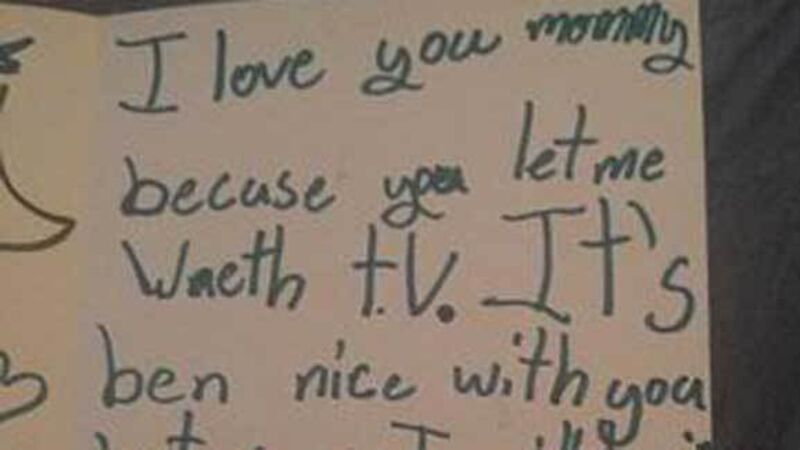 I love you mommy
becuse you let me
Waeth t.V. It's
ben nice with you